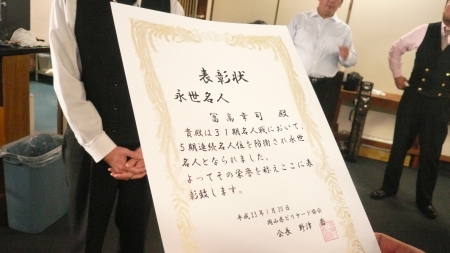 表彰状
永世名人
富高幸司 殿
貴殿は31期名人戦において、
5期連続名人位を防衛され永世
名人となられました。
よってその栄誉を称えここに表
彰致します。
平成23年1月30日
岡山県ビリヤード協会
会長 野津